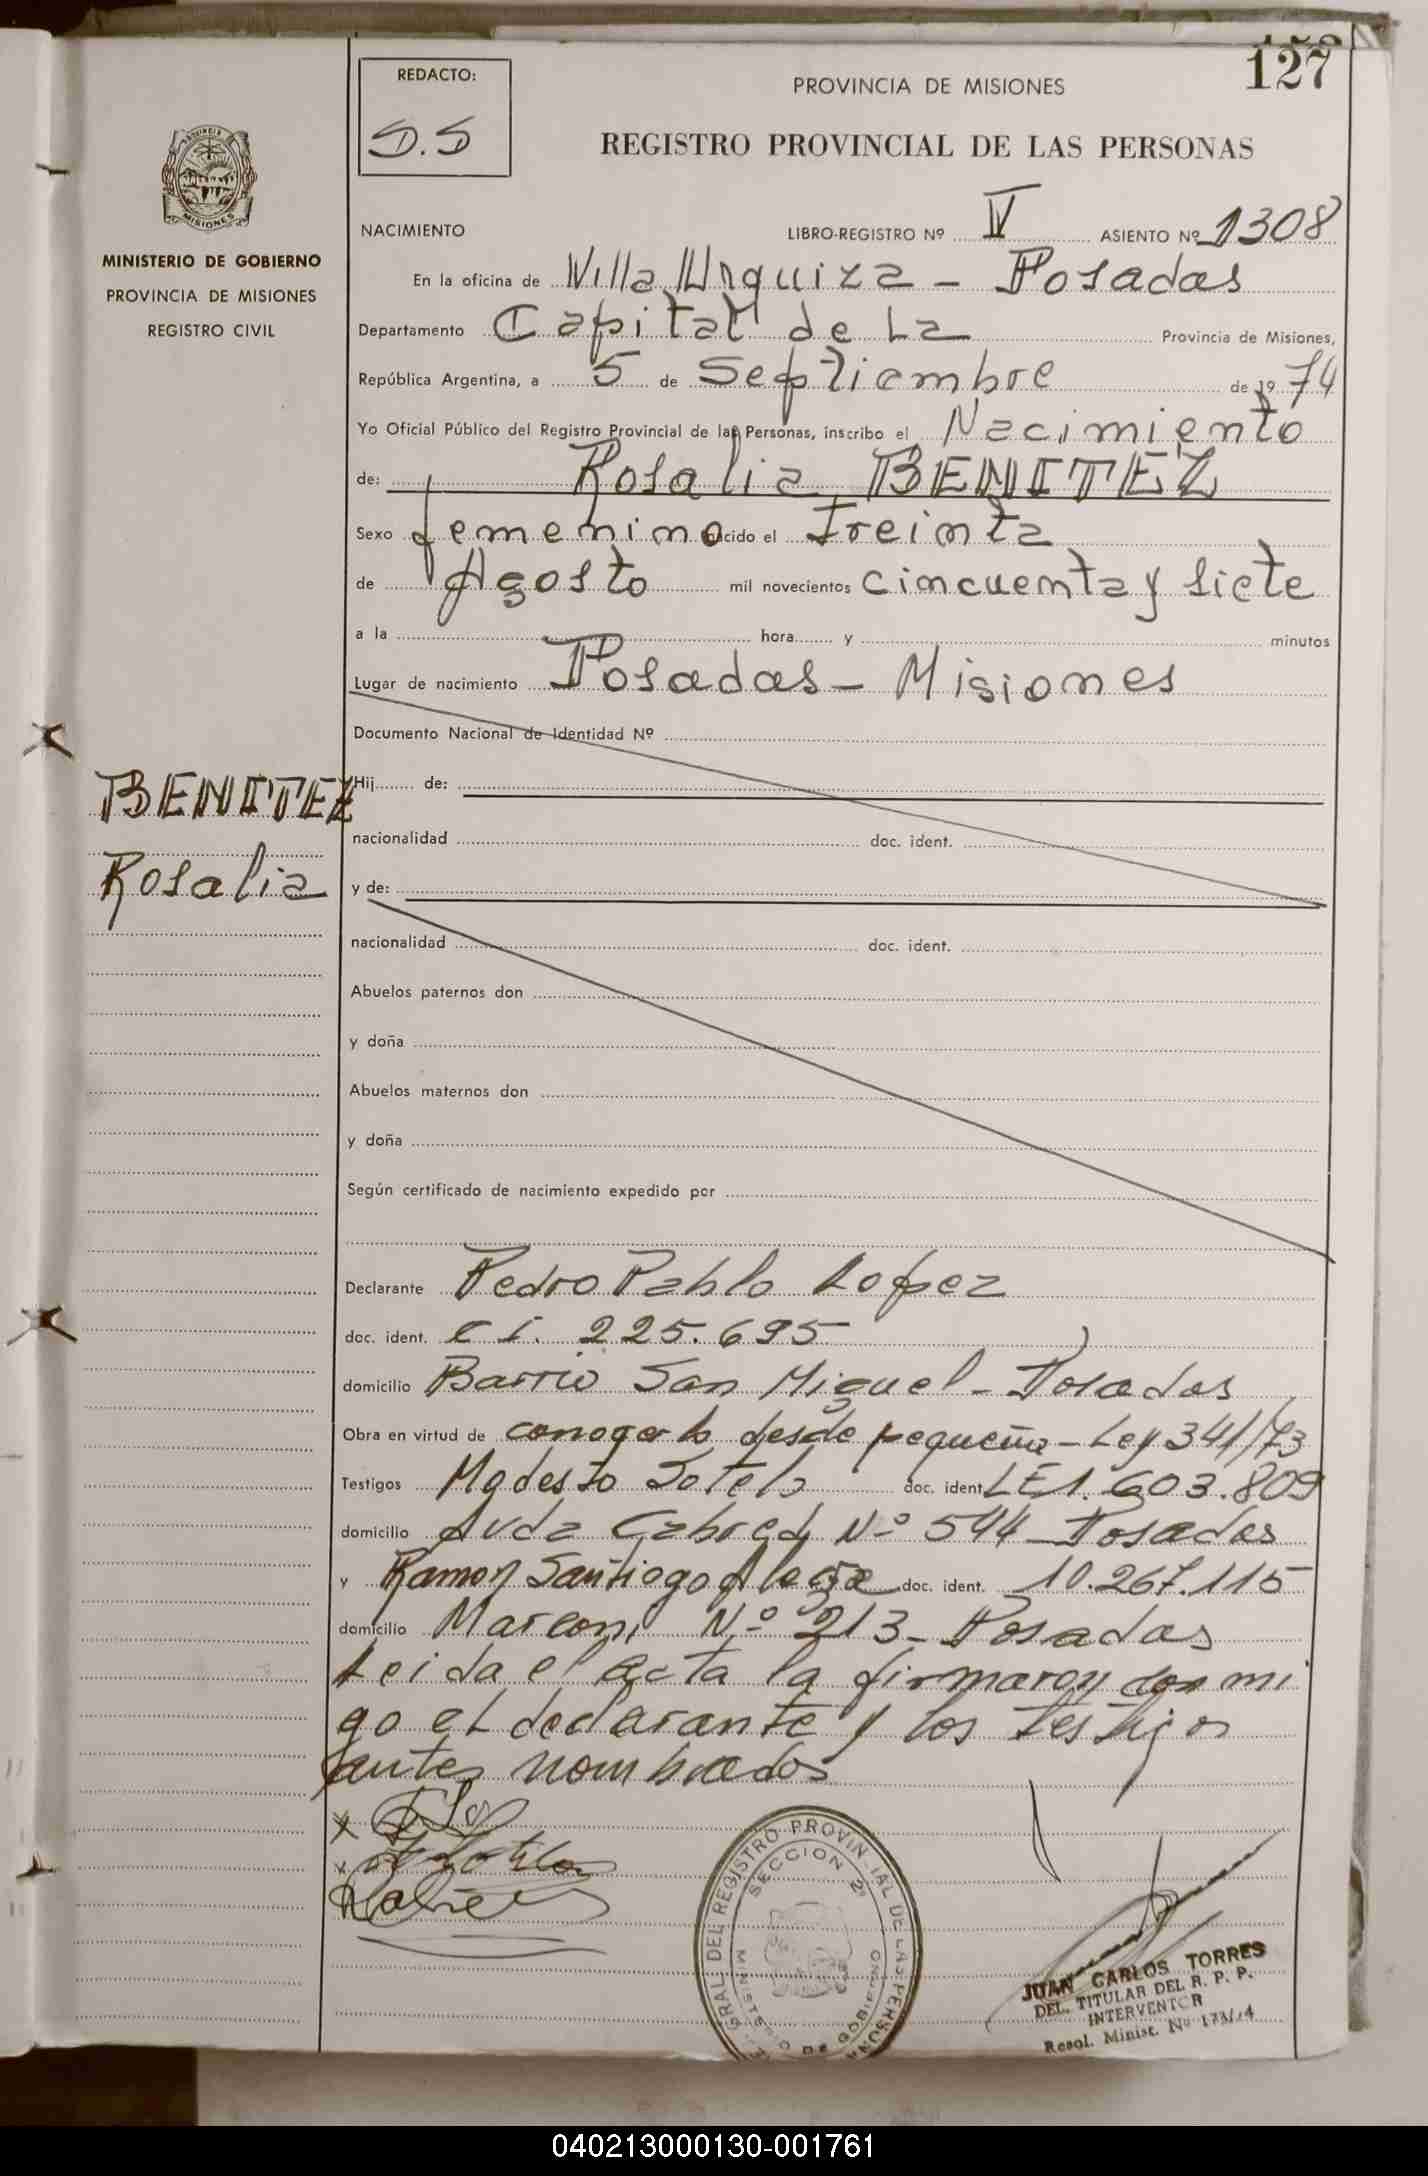 127
REDACTO:
S.S
PROVINCIA DE MISIONES
REGISTRO PROVINCIAL DE LAS PERSONAS
MISIONES
MINISTERIO DE GOBIERNO
PROVINCIA DE MISIONES
REGISTRO CIVIL
NACIMIENTO LIBRO-REGISTRO Nº IV ASIENTO Nº 1308
En la oficina de Villa Urquiza - Posadas
Departamento Capital de La Provincia de Misiones,
República Argentina, a 5 de Septiembre de 1974
Yo Oficial Público del Registro Provincial de las Personas, inscribo el Nacimiento
de: Rosalia BENITEZ
Sexo femenino nacido el Treinta
de Agosto mil novecientos cincuenta y siete
a la hora y minutos
Lugar de nacimiento Posadas - Misiones
Documento Nacional de Identidad Nº
BENITEZ
Rosalia
Hij de:
nacionalidad doc. ident.
y de:
nacionalidad doc. ident.
Abuelos paternos don
y doña
Abuelos maternos don
y doña
Según certificado de nacimiento expedido por
Declarante Pedro Pablo Lopez
doc. ident. C I. 225.695
domicilio Barrio San Miguel - Posadas
Obra en virtud de conocerla desde pequeña - Ley 341/73
Testigos Modesto Sotelo doc. ident. LE 1.603.809
domicilio Avda Cabred Nº 544 - Posadas
y Ramon Santiago doc. ident. 10.267.115
domicilio Marconi Nº 213 - Posadas
Leida el acta la firmaron con mi
go el declarante y los testigos
antes nombrados
GRAL. DEL REGISTRO PROVINCIAL DE LAS PERSONAS
SECCION 2ª
MINISTERIO DE GOBIERNO
JUAN CARLOS TORRES
DEL. TITULAR DEL R. P. P.
INTERVENTOR
Resol. Minist. Nº 173/74
040213000130-001761